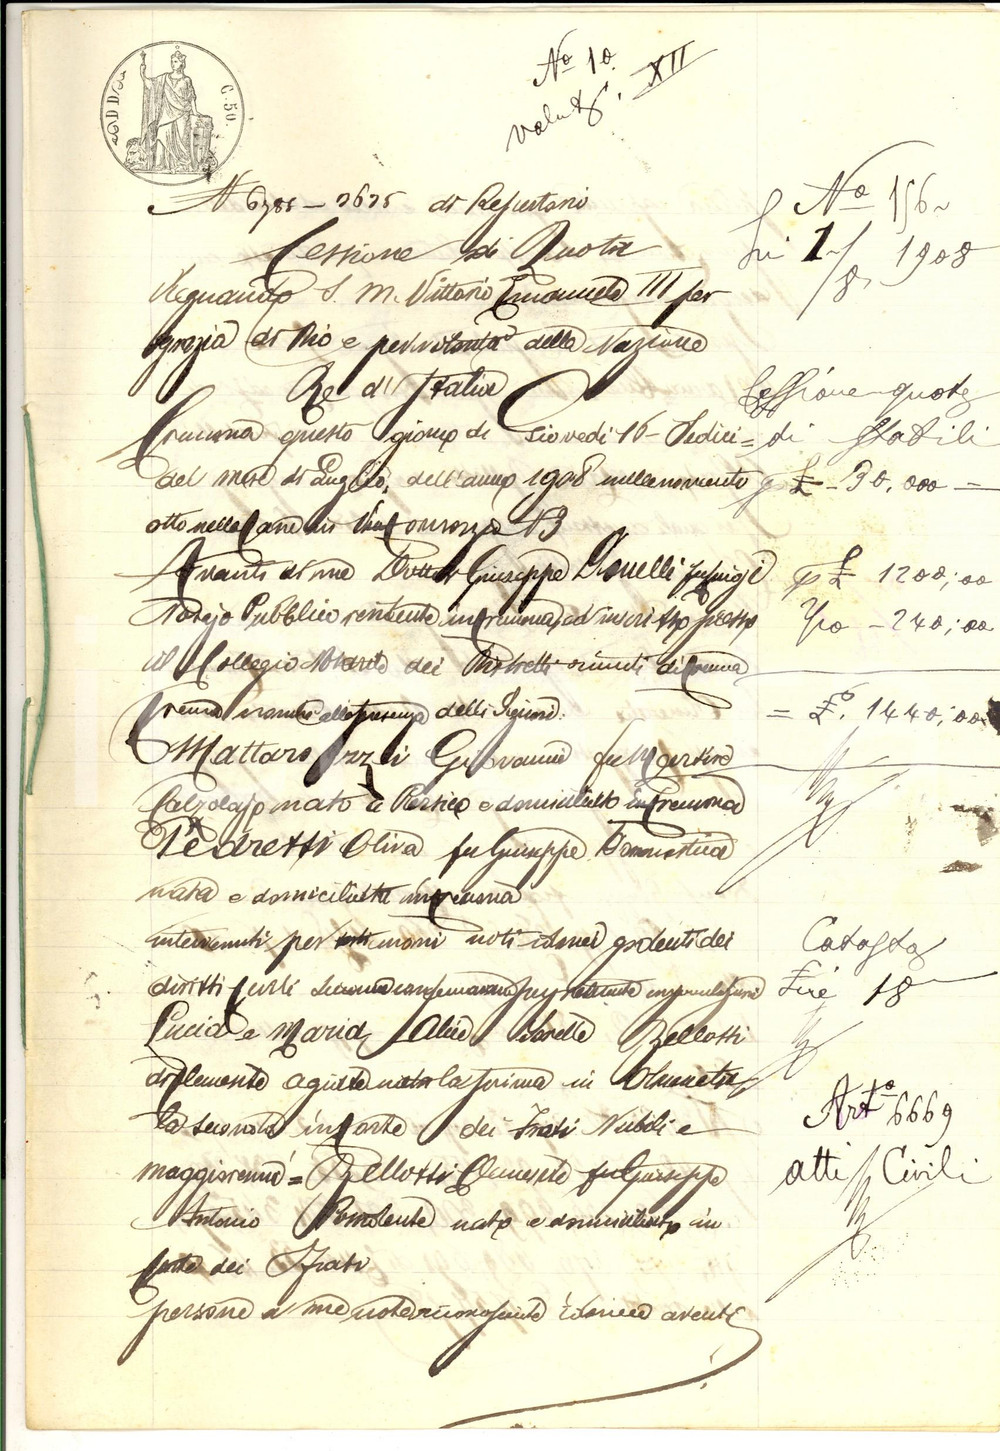 No 10.
XII
C. 50.
N 6785 – 3635 di Repertorio
No 156
li 1/8 1908
Cessione di Quota
Regnando S. M. Vittorio Emanuele III per
grazia di Dio e per volontà della Nazione
Re d'Italia
Cessione quota
Cremona questo giorno di Giovedi 16 – Sedici =
di Stabili
del mese di Luglio, dell'anno 1908 millenovecento
p £ – 30,000 =
otto nella Casa in Via 13
Avanti di me Dottor Giuseppe fu Luigi
p £ 1200,00
Notajo Pubblico residente in Cremona, ed inscritto presso
– 240,00
il Collegio Notarile dei Distretti riuniti di Crema
Cremona alla presenza delli Signori:
= £. 1440,00
Mattarozzi Giovanni fu Martino
Calzolajo nato a Persico e domiciliato in Cremona
Pedretti Oliva fu Giuseppe Domestica
nata e domiciliata in Cremona
intervenuti per testimoni noti idonei godenti dei
Catasto
diritti Civili
Lire 18
Lucia e Maria Alice Sorelle Bellotti
nate la prima in Olmeneta
la seconda in Corte dei Frati Nubili e
Art.o 6669
maggiorenni = Bellotti Clemente fu Giuseppe
atti Civili
Antonio Possidente nato e domiciliato in
Corte dei Frati
persone a me note idonee aventi